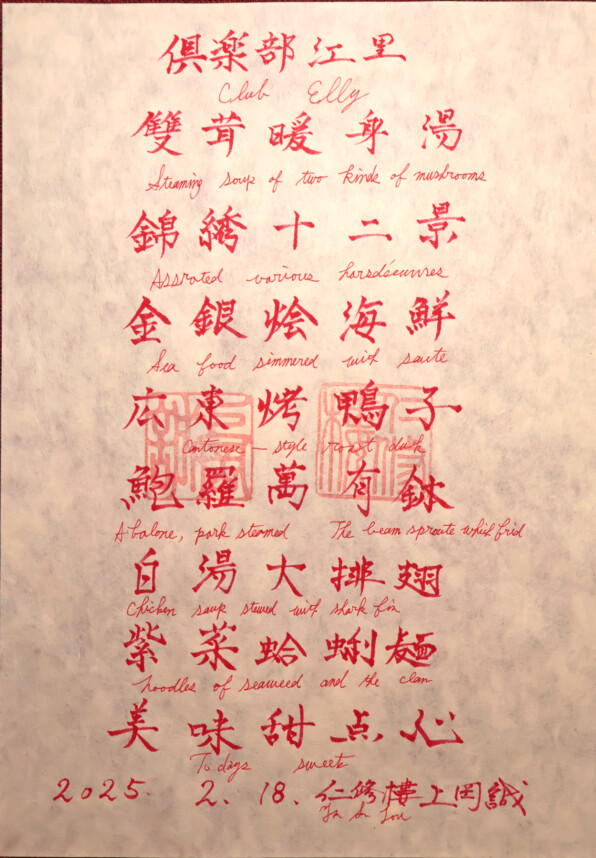 倶楽部江里
Club Elly
雙茸暖身湯
Steaming soup of two kinds of mushrooms
錦綉十二景
Assrated various horsdécuvres
金銀烩海鮮
Sea food simmered wich saute
広東烤鴨子
Cantonese-style roast duck
鮑羅萬有
Abalone, park steamed The beam sproute whish frid
白湯大排翅
Chicken saup stewed wish shark fin
紫菜蛤蜊麺
noodles of seaweed and the clam
美味甜点心
To days sweets
2025. 2. 18. 仁修樓上岡